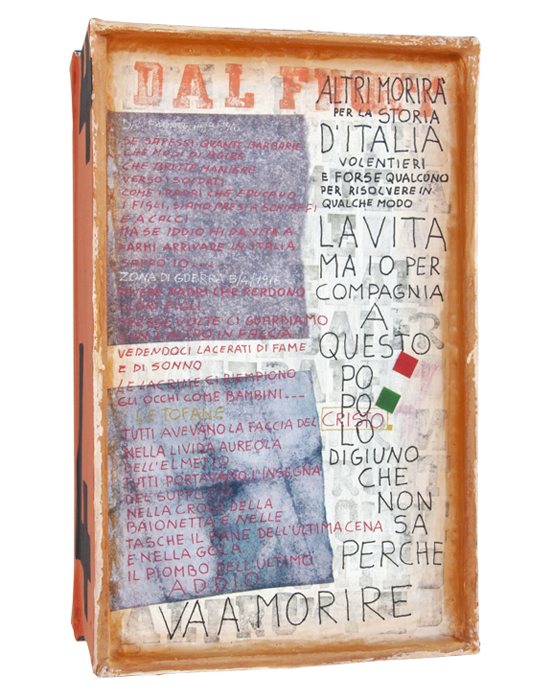 DAL F
SE SAPESSI QUANTE BARBARIE
CHE MODI DI AGIRE
CHE BRUTTE MANIERE
VERSO I SOLDATI
COME I BABBI CHE EDUCANO
I FIGLI, SIAMO PRESI A SCHIAFFI
E A CALCI
MA SE IDDIO MI DA VITA A
ARRIVARE IN ITALIA
SAPRO IO...
ZONA DI GUERRA
MADRI CHE PERDONO
FIGLI
VOLTE CI GUARDIAMO
IN FACCIA
VEDENDOCI LACERATI DI FAME
E DI SONNO
LE LACRIME CI RIEMPIONO
GLI OCCHI COME BAMBINI...
LE TOFANE
TUTTI AVEVANO LA FACCIA DEL CRISTO
NELLA LIVIDA AUREOLA
DELL'ELMETTO
TUTTI PORTAVANO L'INSEGNA
DEL SUPPLIZIO
NELLA CROCE DELLA
BAIONETTA E NELLE
TASCHE IL PANE DELL'ULTIMA CENA
E NELLA GOLA
IL PIOMBO DELL'ULTIMO
ADDIO
ALTRI MORIRÀ
PER LA STORIA
D'ITALIA
VOLENTIERI
E FORSE QUALCUNO
PER RISOLVERE IN
QUALCHE MODO
LA VITA
MA IO PER
COMPAGNIA
A
QUESTO
PO
PO
LO
DIGIUNO
CHE
NON
SA
PERCHE
VA A MORIRE